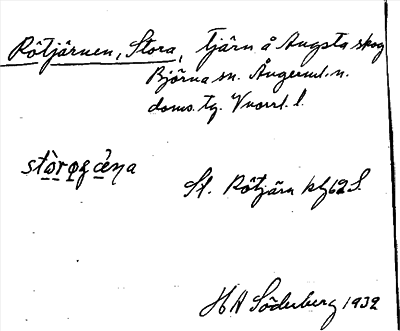 Rötjärnen, Stora, tjärn å Angsta skog
Björna sn. Ångerml. n.
doms. tg. Vnorrl. l.
St. Rötjärn kbl 62 S.
H A Söderberg 1932